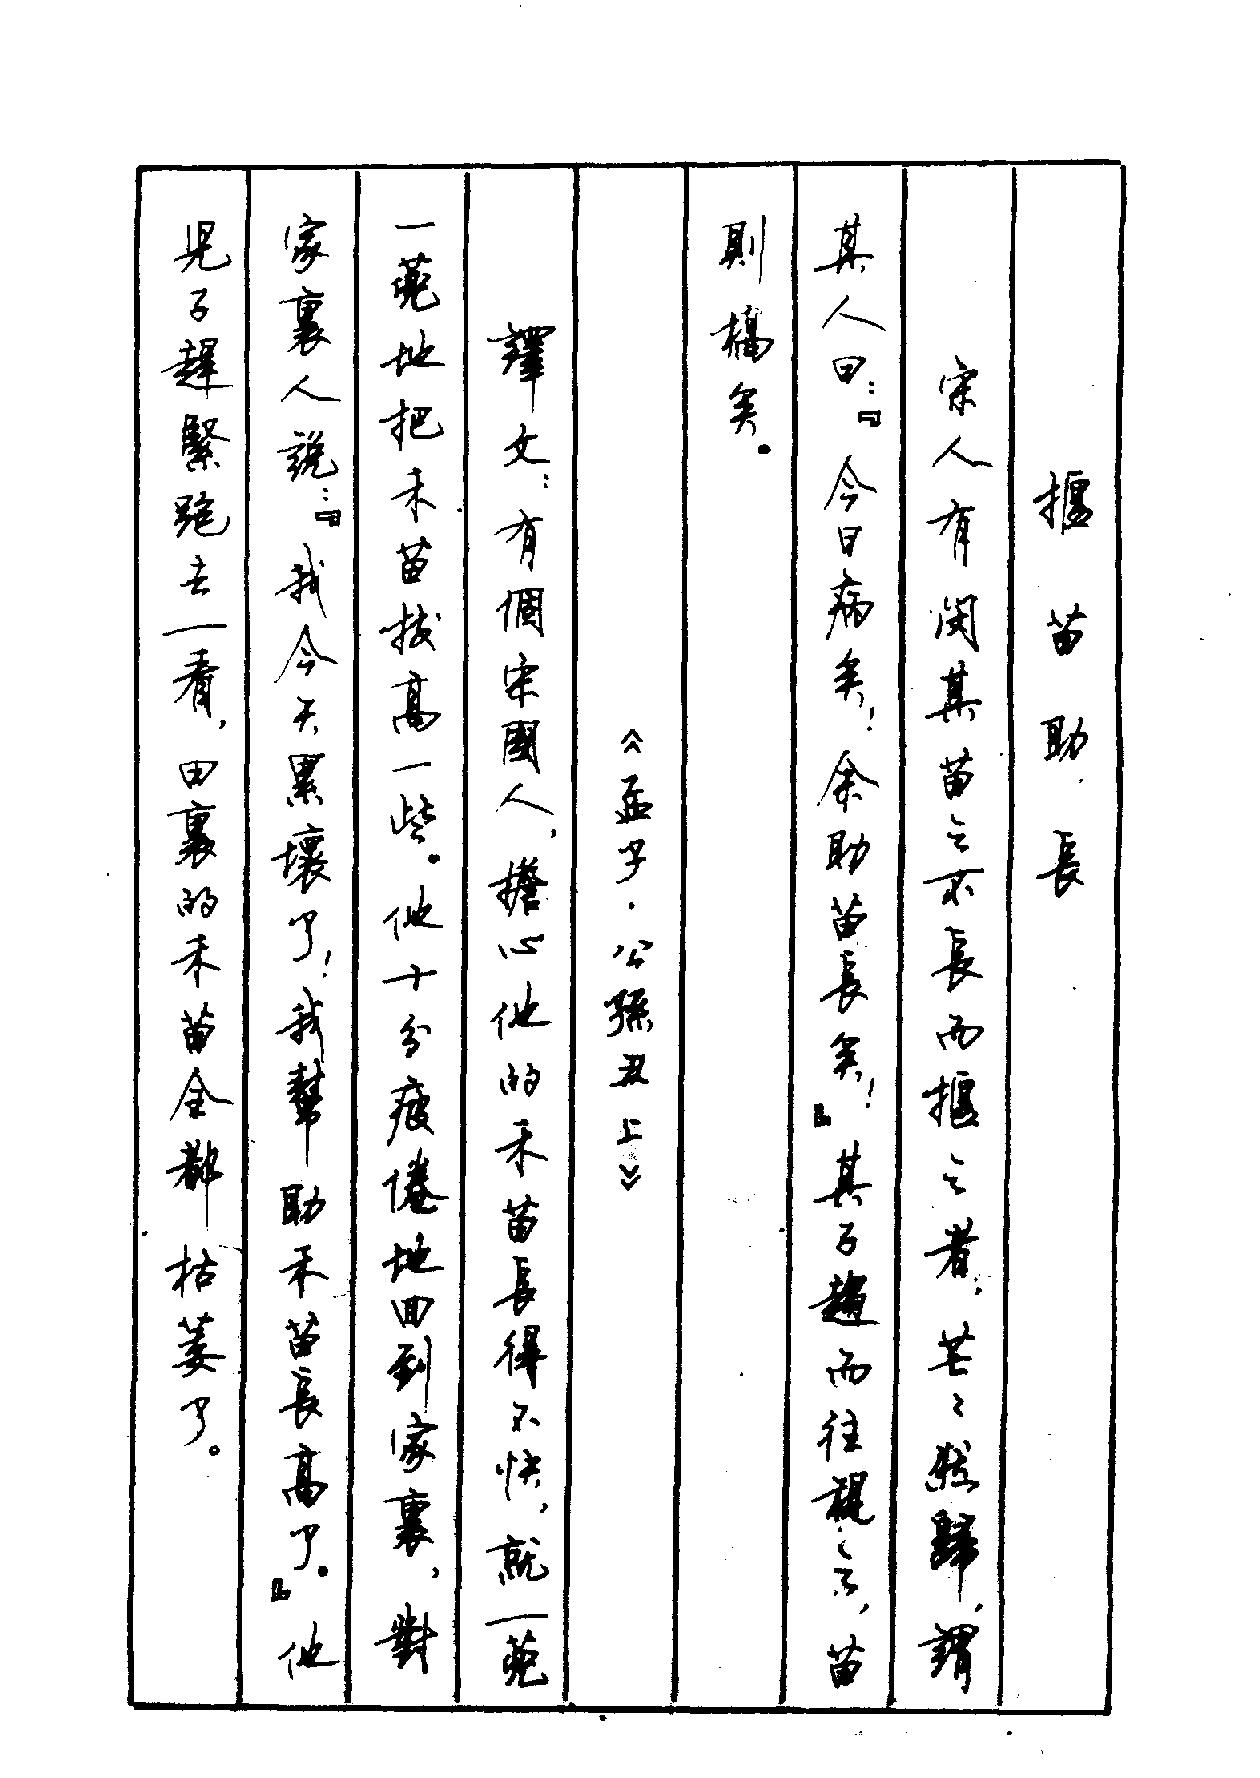 揠苗助長
宋人有閔其苗之不長而揠之者，芒〻然歸，謂
其人曰：『今日病矣！余助苗長矣！』其子趨而往視之，苗
則槁矣。
《孟子·公孫丑上》
譯文：有個宋國人，擔心他的禾苗長得不快，就一蔸
一蔸地把禾苗拔高一些。他十分疲倦地回到家裏，對
家裏人說：『我今天累壞了！我幫助禾苗長高了。』他
兒子趕緊跑去一看，田裏的禾苗全都枯萎了。